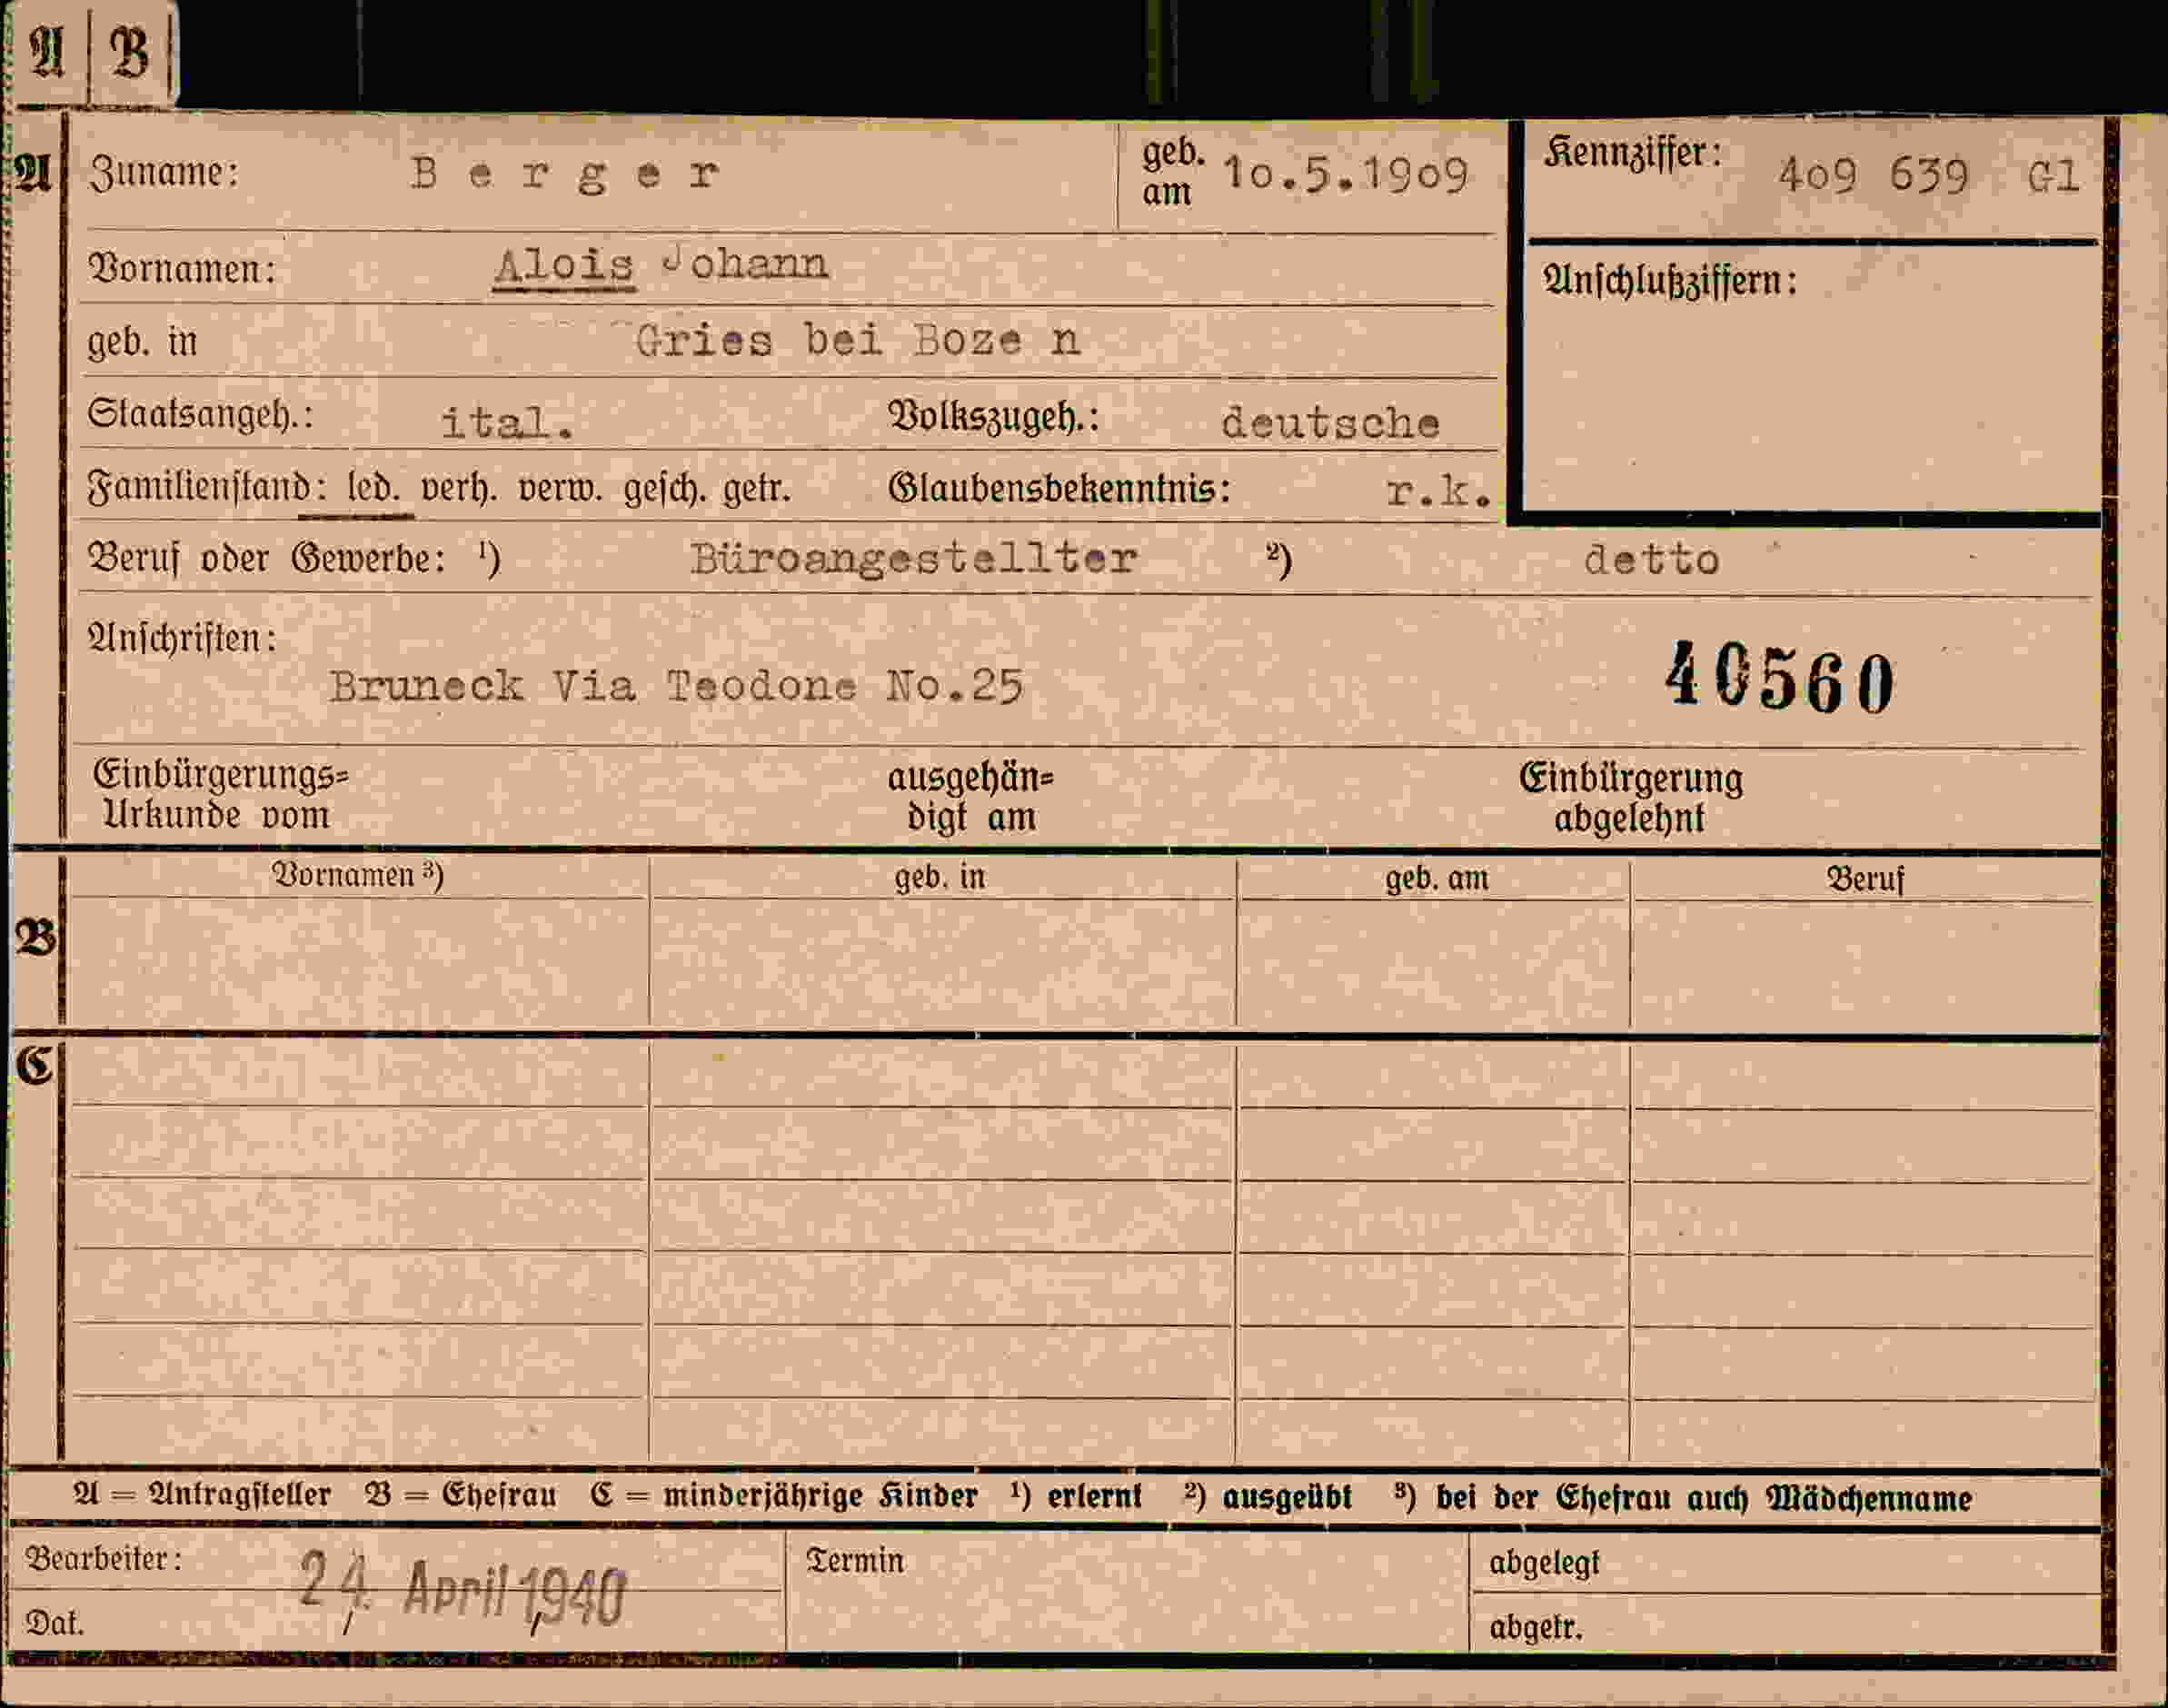 A B
A Zuname: Berger geb. am 10.5.1909 Kennziffer: 409 639 Gl
Vornamen: Alois Johann Anschlußziffern:
geb. in Gries bei Boze n
Staatsangeh.: ital. Volkszugeh.: deutsche
Familienstand: led. verh. verw. gesch. getr. Glaubensbekenntnis: r.k.
Beruf oder Gewerbe: ¹) Büroangestellter ²) detto
Anschriften:
Bruneck Via Teodone No.25 40560
Einbürgerungs= ausgehän= Einbürgerung
Urkunde vom digt am abgelehnt
Vornamen ³) geb. in geb. am Beruf
B
C
A = Antragsteller B = Ehefrau C = minderjährige Kinder ¹) erlernt ²) ausgeübt ³) bei der Ehefrau auch Mädchenname
Bearbeiter: 24. April 1940 Termin abgelegt
Dat. abgetr.